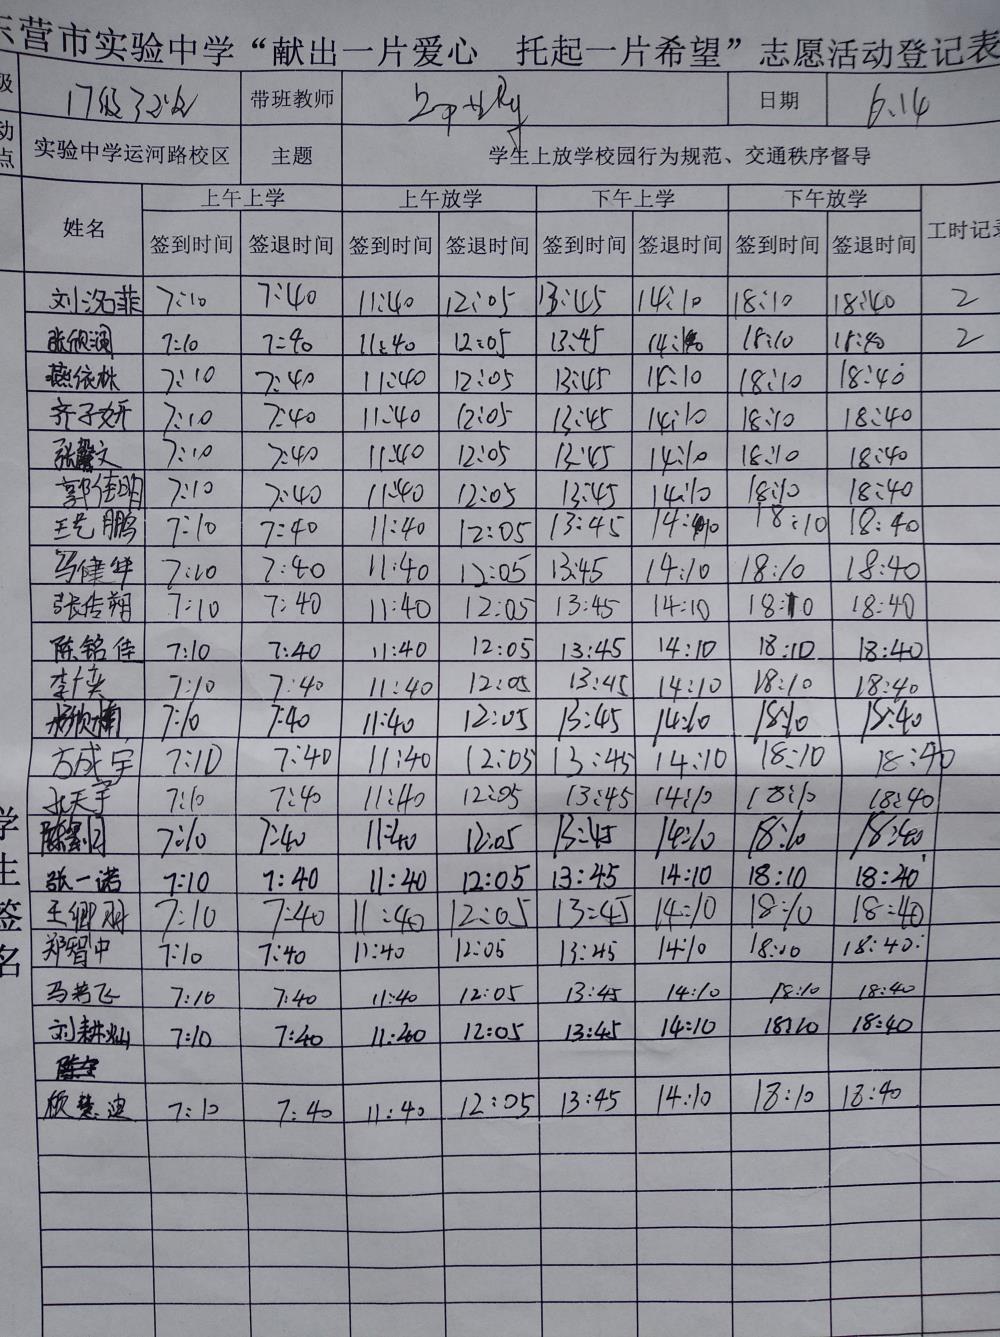 营市实验中学“献出一片爱心 托起一片希望”志愿活动登记表
级 17级 带班教师 日期 6.14
动点 实验中学运河路校区 主题 学生上放学校园行为规范、交通秩序督导
姓名 上午上学 上午放学 下午上学 下午放学 工时记录
签到时间 签退时间 签到时间 签退时间 签到时间 签退时间 签到时间 签退时间
学生签名
刘洺菲 7:10 7:40 11:40 12:05 13:45 14:10 18:10 18:40 2
张欣澜 7:10 7:40 11:40 12:05 13:45 14:10 18:10 18:40 2
燕依林 7:10 7:40 11:40 12:05 13:45 14:10 18:10 18:40
齐子妍 7:10 7:40 11:40 12:05 13:45 14:10 18:10 18:40
张馨文 7:10 7:40 11:40 12:05 13:45 14:10 18:10 18:40
郭佳明 7:10 7:40 11:40 12:05 13:45 14:10 18:10 18:40
王艺鹏 7:10 7:40 11:40 12:05 13:45 14:10 18:10 18:40
马健华 7:10 7:40 11:40 12:05 13:45 14:10 18:10 18:40
张传朔 7:10 7:40 11:40 12:05 13:45 14:10 18:10 18:40
陈铭佳 7:10 7:40 11:40 12:05 13:45 14:10 18:10 18:40
李奕 7:10 7:40 11:40 12:05 13:45 14:10 18:10 18:40
杨欣楠 7:10 7:40 11:40 12:05 13:45 14:10 18:10 18:40
方成宇 7:10 7:40 11:40 12:05 13:45 14:10 18:10 18:40
天宇 7:10 7:40 11:40 12:05 13:45 14:10 18:10 18:40
陈 7:10 7:40 11:40 12:05 13:45 14:10 18:10 18:40
张一诺 7:10 7:40 11:40 12:05 13:45 14:10 18:10 18:40
王卿羽 7:10 7:40 11:40 12:05 13:45 14:10 18:10 18:40
郑智中 7:10 7:40 11:40 12:05 13:45 14:10 18:10 18:40
马若飞 7:10 7:40 11:40 12:05 13:45 14:10 18:10 18:40
刘耕灿 7:10 7:40 11:40 12:05 13:45 14:10 18:10 18:40
颀楚迪 7:10 7:40 11:40 12:05 13:45 14:10 18:10 18:40